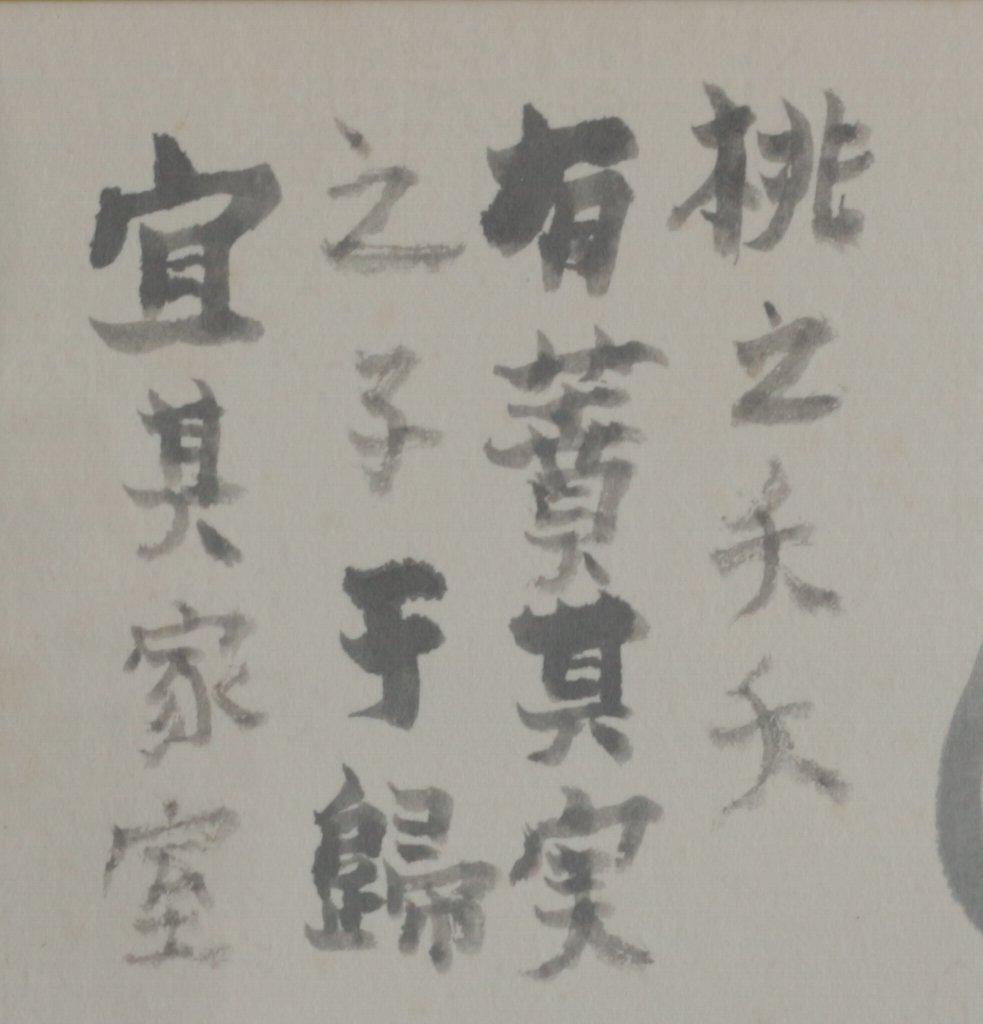 桃之夭夭
有蕡其実
之子于歸
宜其家室